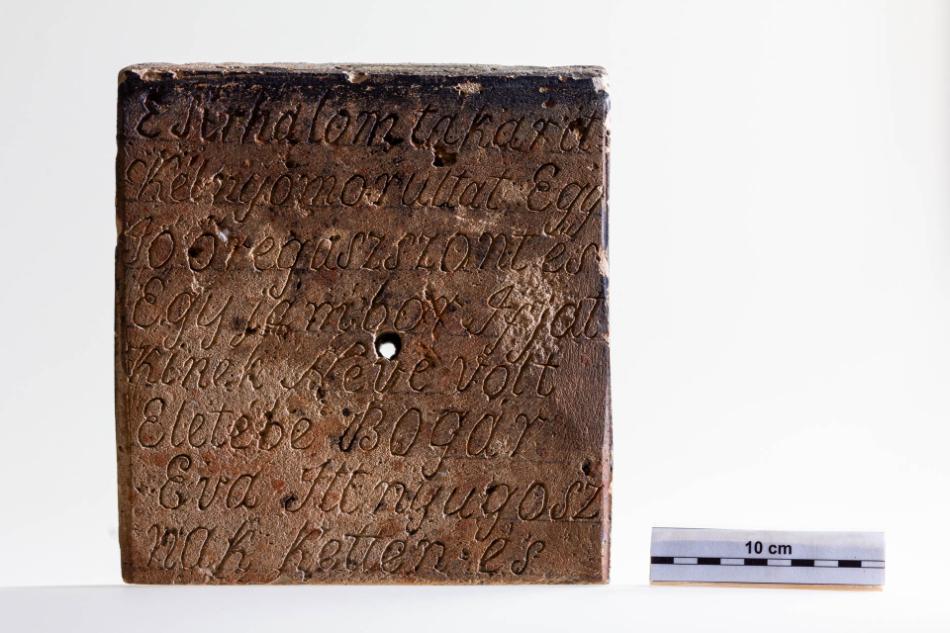 E Sírhalom takará
Két nyomorultat Egy
Jo Öregaszszont és
Egy jámbor Ifjat
Kinek Neve vólt
Eletébe Bogár
Eva Itt nyugosz
nak ketten és
10 cm